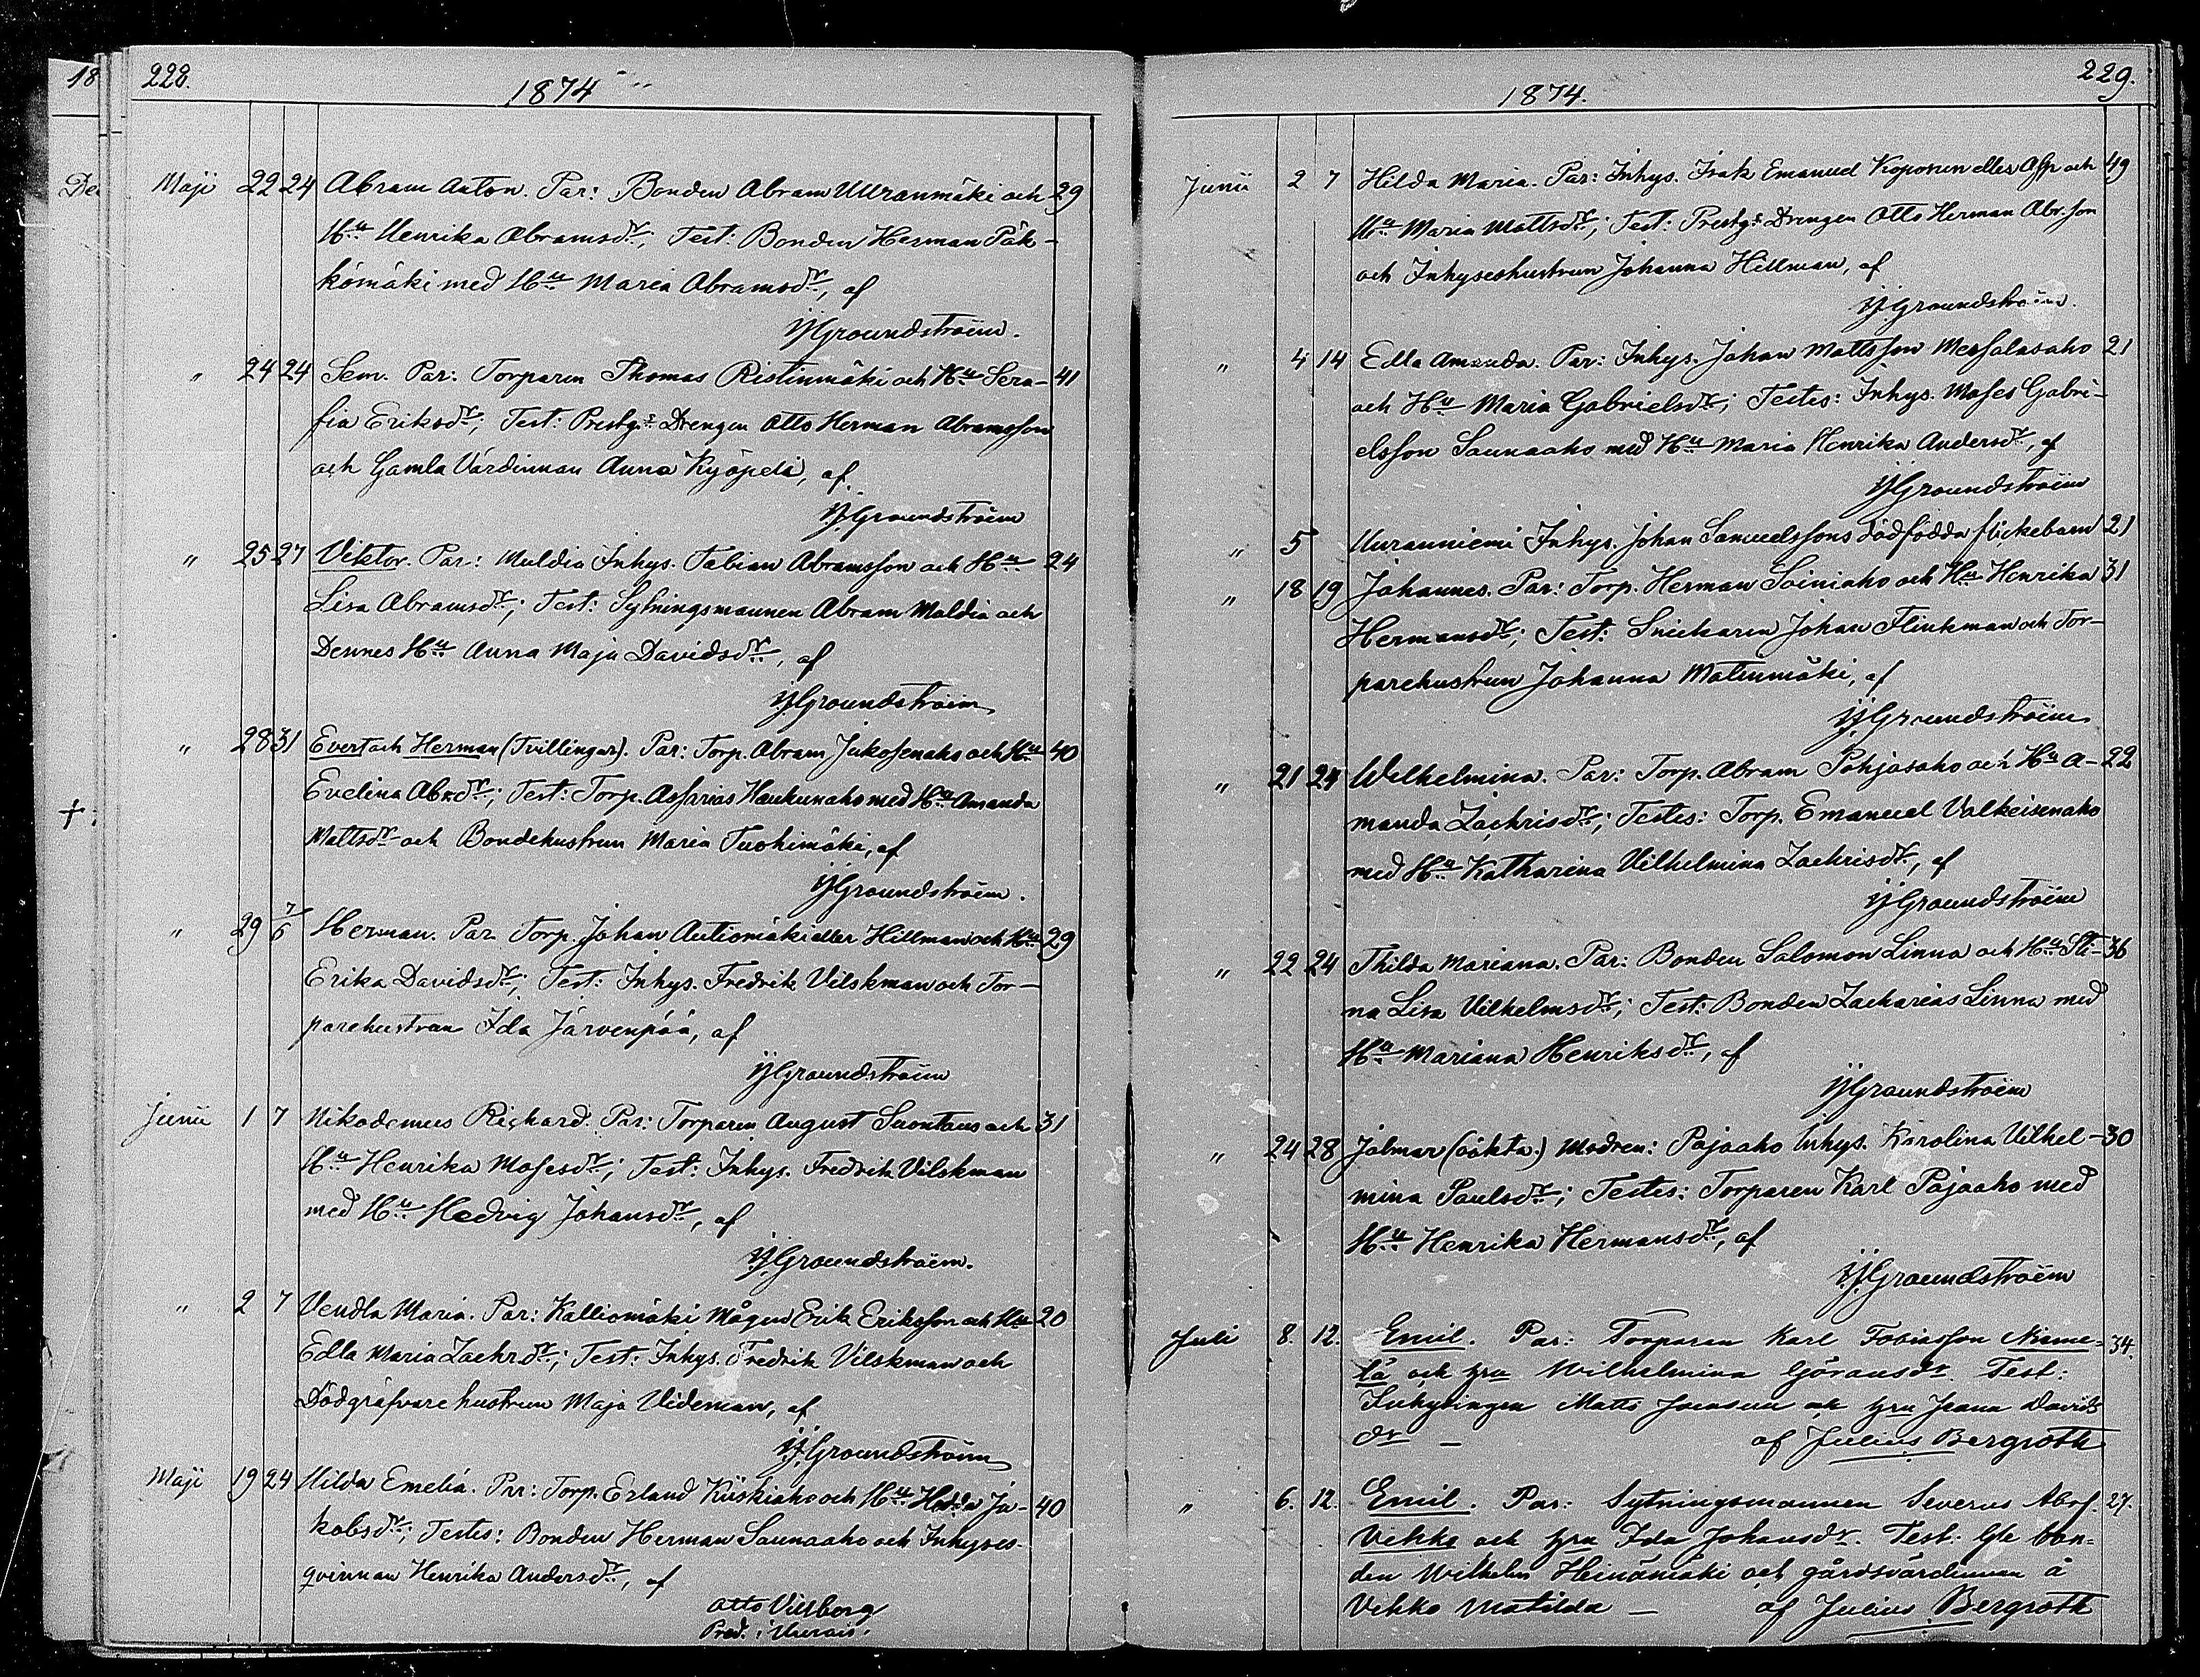 228.
1874
Maji 22 24 Abram Anton. Par: Bonden Abram Uuranmäki och 29
Hu Henrika Abramsdr; Test: Bonden Herman Päk-
kömäki med Hu Maria Abramsdr, af
Groundstroëm.
" 24 24 Sem. Par: Torparen Thomas Ristinmäki och Hu Sera- 41
fia Eriksdr; Test: Prestgs Drengen Otto Herman Abramsson
och Gamla Värdinnan Anna Kyöpeli, af
Groundstroëm
" 25 27 Viktor. Par: Muldia Inhys. Fabian Abramsson och Hu 24
Lisa Abramsdr; Test: Sytningsmannen Abram Maldia och
Dennes Hu Anna Maja Davidsdr, af
Groundstroëm
" 28 31 Evert och Herman (Tvillingar). Par: Torp. Abram Jukosenaho och Hu 40
Evelina Abrdr; Test: Torp. Assarias Haukunaho med Hu Amanda
Mattsdr och Bondehustrun Maria Tuohimäki, af
Groundstroëm.
" 29 7/6 Herman. Par Torp. Johan Autiomäki eller Hillman och Hu 29
Erika Davidsdr; Test: Inhys. Fredrik Vilskman och Tor-
parehustrun Ida Järvenpää, af
Groundstroëm
Junii 1 7 Nikodemus Richard. Par: Torparen August Suontaus och 31
Hu Henrika Mosesdr; Test: Inhys. Fredrik Vilskman
med Hu Hedvig Johansdr, af
Groundstroëm.
" 2 7 Vendla Maria. Par: Kalliomäki Mågen Erik Eriksson och Hu 20
Edla Maria Zachrdr; Test: Inhys. Fredrik Vilskman och
Dödgräfvare hustrun Maja Videman, af
Groundstroëm
Maji 19 24 Hilda Emeliá. Par: Torp. Erland Kiiskiaho och Hu Hedda Ja- 40
kobsdr; Testes: Bonden Herman Saunaaho och Inhyses-
qvinnan Henrika Andersdr, af
Otto Villberg
Pred. i Uurais.
229.
1874.
Junii 2 7 Hilda Maria. Par: Inhys. Isak Emanuel Koposen eller Asp och 49
Hu Maria Mattsdr; Test: Prestgs Drengen Otto Herman Abr.son
och Inhyseshustrun Johanna Hillman, af
Groundstroëm.
" 4 14 Edla Amanda. Par: Inhys. Johan Mattsson Mersalasaho 21
och Hu Maria Gabrielsdr; Testes: Inhys. Moses Gabri-
elsson Saunaaho med Hu Maria Henrika Andersdr, af
Groundstroëm
" 5 Uurauniemi Inhys. Johan Samuelssons dödfödda flickebarn 21
" 18 19 Johannes. Par: Torp. Herman Soiniaho och Hu Henrika 31
Hermansdr; Test: Snickaren Johan Flinkman och Tor-
parehustrun Johanna Matinmäki, af
Groundstroëm
" 21 24 Wilhelmina. Par: Torp. Abram Pohjasaho och Hu A- 22
manda Zachrisdr; Testes: Torp. Emanuel Valkeisenaho
med Hu Katharina Vilhelmina Zachrisdr, af
Groundstroëm
" 22 24 Thilda Mariana. Par: Bonden Salomon Linna och Hu Sti- 36
na Lisa Vilhelmsdr; Test: Bonden Zacharias Linna med
Hu Mariana Henriksdr, af
Groundstroëm
" 24 28 Jalmar (oäkta.) Modren: Pajaaho Inhys. Karolina Vilhel- 30
mina Paulsdr; Testes: Torparen Karl Pajaaho med
Hu Henrika Hermansdr, af
Groundstroëm
Juli 8. 12. Emil. Par: Torparen Karl Tobiasson Nieme- 34.
lä och hru Wilhelmina Göransdr. Test:
Inhysingen Matts Joensuu och hru Jeana Davids
dr — af Julius Bergroth
" 6. 12. Emil. Par: Sytningsmannen Severus Abrs. 27.
Vekko och hru Ida Johansdr. Test: Gle bon-
den Wilhelm Heinämäki och gårdsvärdinnan å
Vekko Matilda — af Julius Bergroth